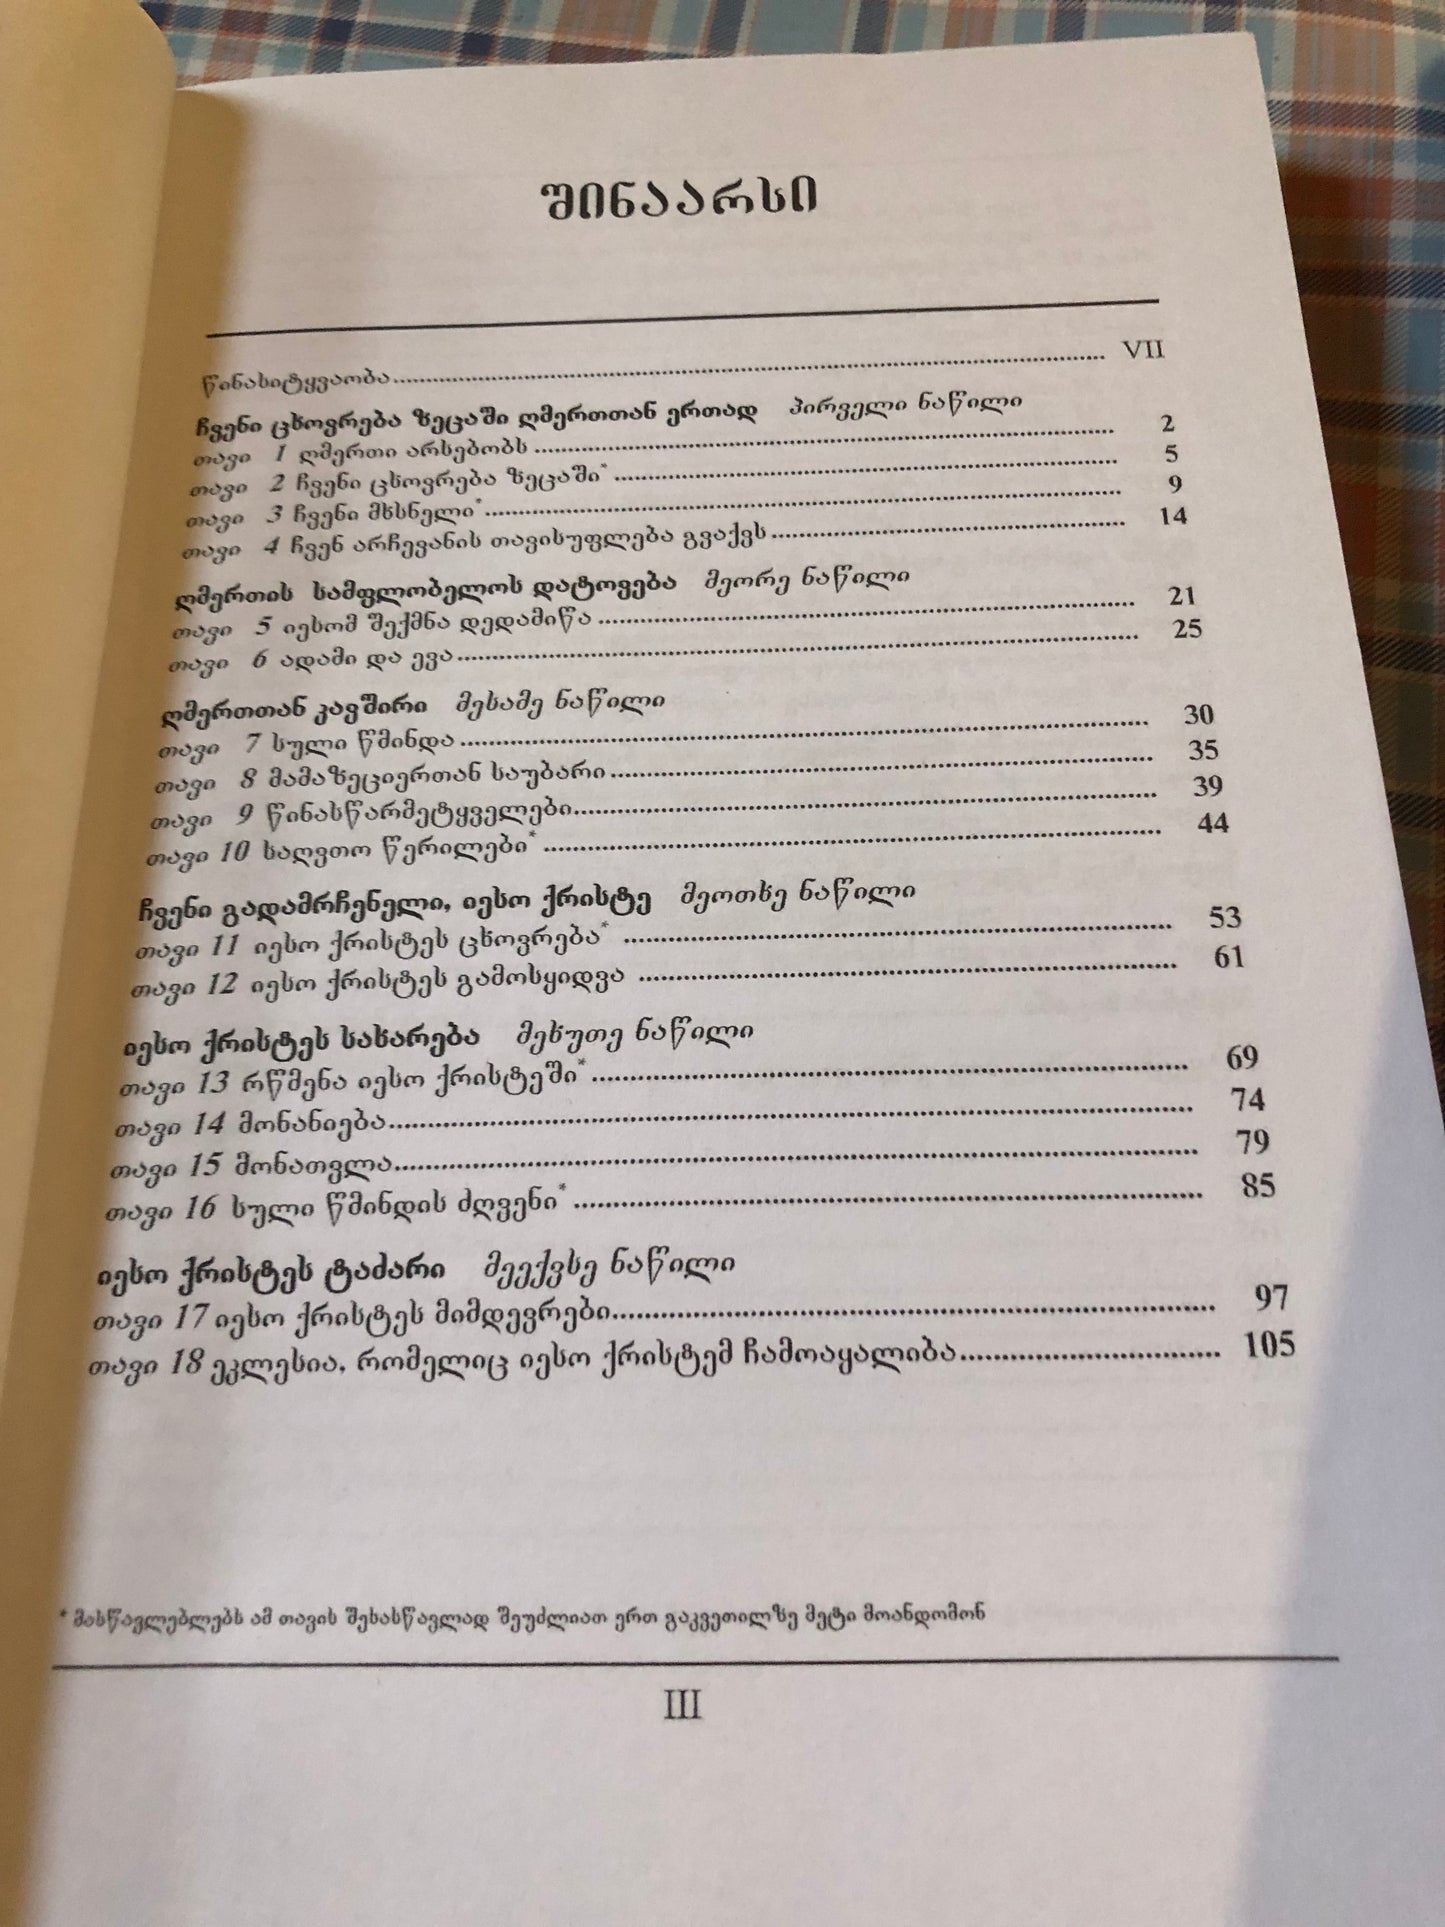 შინაარსი
წინასიტყვაობა........................................................ VII
ჩვენი ცხოვრება ზეცაში ღმერთთან ერთად პირველი ნაწილი
თავი 1 ღმერთი არსებობს ........................................................ 2
თავი 2 ჩვენი ცხოვრება ზეცაში* ........................................................ 5
თავი 3 ჩვენი მხსნელი* ........................................................ 9
თავი 4 ჩვენ არჩევანის თავისუფლება გვაქვს ........................................................ 14
ღმერთის სამფლობელოს დატოვება მეორე ნაწილი
თავი 5 იესომ შექმნა დედამიწა ........................................................ 21
თავი 6 ადამი და ევა ........................................................ 25
ღმერთთან კავშირი მესამე ნაწილი
თავი 7 სული წმინდა ........................................................ 30
თავი 8 მამაზეციერთან საუბარი ........................................................ 35
თავი 9 წინასწარმეტყველები........................................................ 39
თავი 10 საღვთო წერილები* ........................................................ 44
ჩვენი გადამრჩენელი, იესო ქრისტე მეოთხე ნაწილი
თავი 11 იესო ქრისტეს ცხოვრება* ........................................................ 53
თავი 12 იესო ქრისტეს გამოსყიდვა ........................................................ 61
იესო ქრისტეს სახარება მეხუთე ნაწილი
თავი 13 რწმენა იესო ქრისტეში* ........................................................ 69
თავი 14 მონანიება........................................................ 74
თავი 15 მონათვლა........................................................ 79
თავი 16 სული წმინდის ძღვენი* ........................................................ 85
იესო ქრისტეს ტაძარი მეექვსე ნაწილი
თავი 17 იესო ქრისტეს მიმდევრები........................................................ 97
თავი 18 ეკლესია, რომელიც იესო ქრისტემ ჩამოაყალიბა................................ 105
* მასწავლებლებს ამ თავის შესასწავლად შეუძლიათ ერთ გაკვეთილზე მეტი მოანდომონ
III